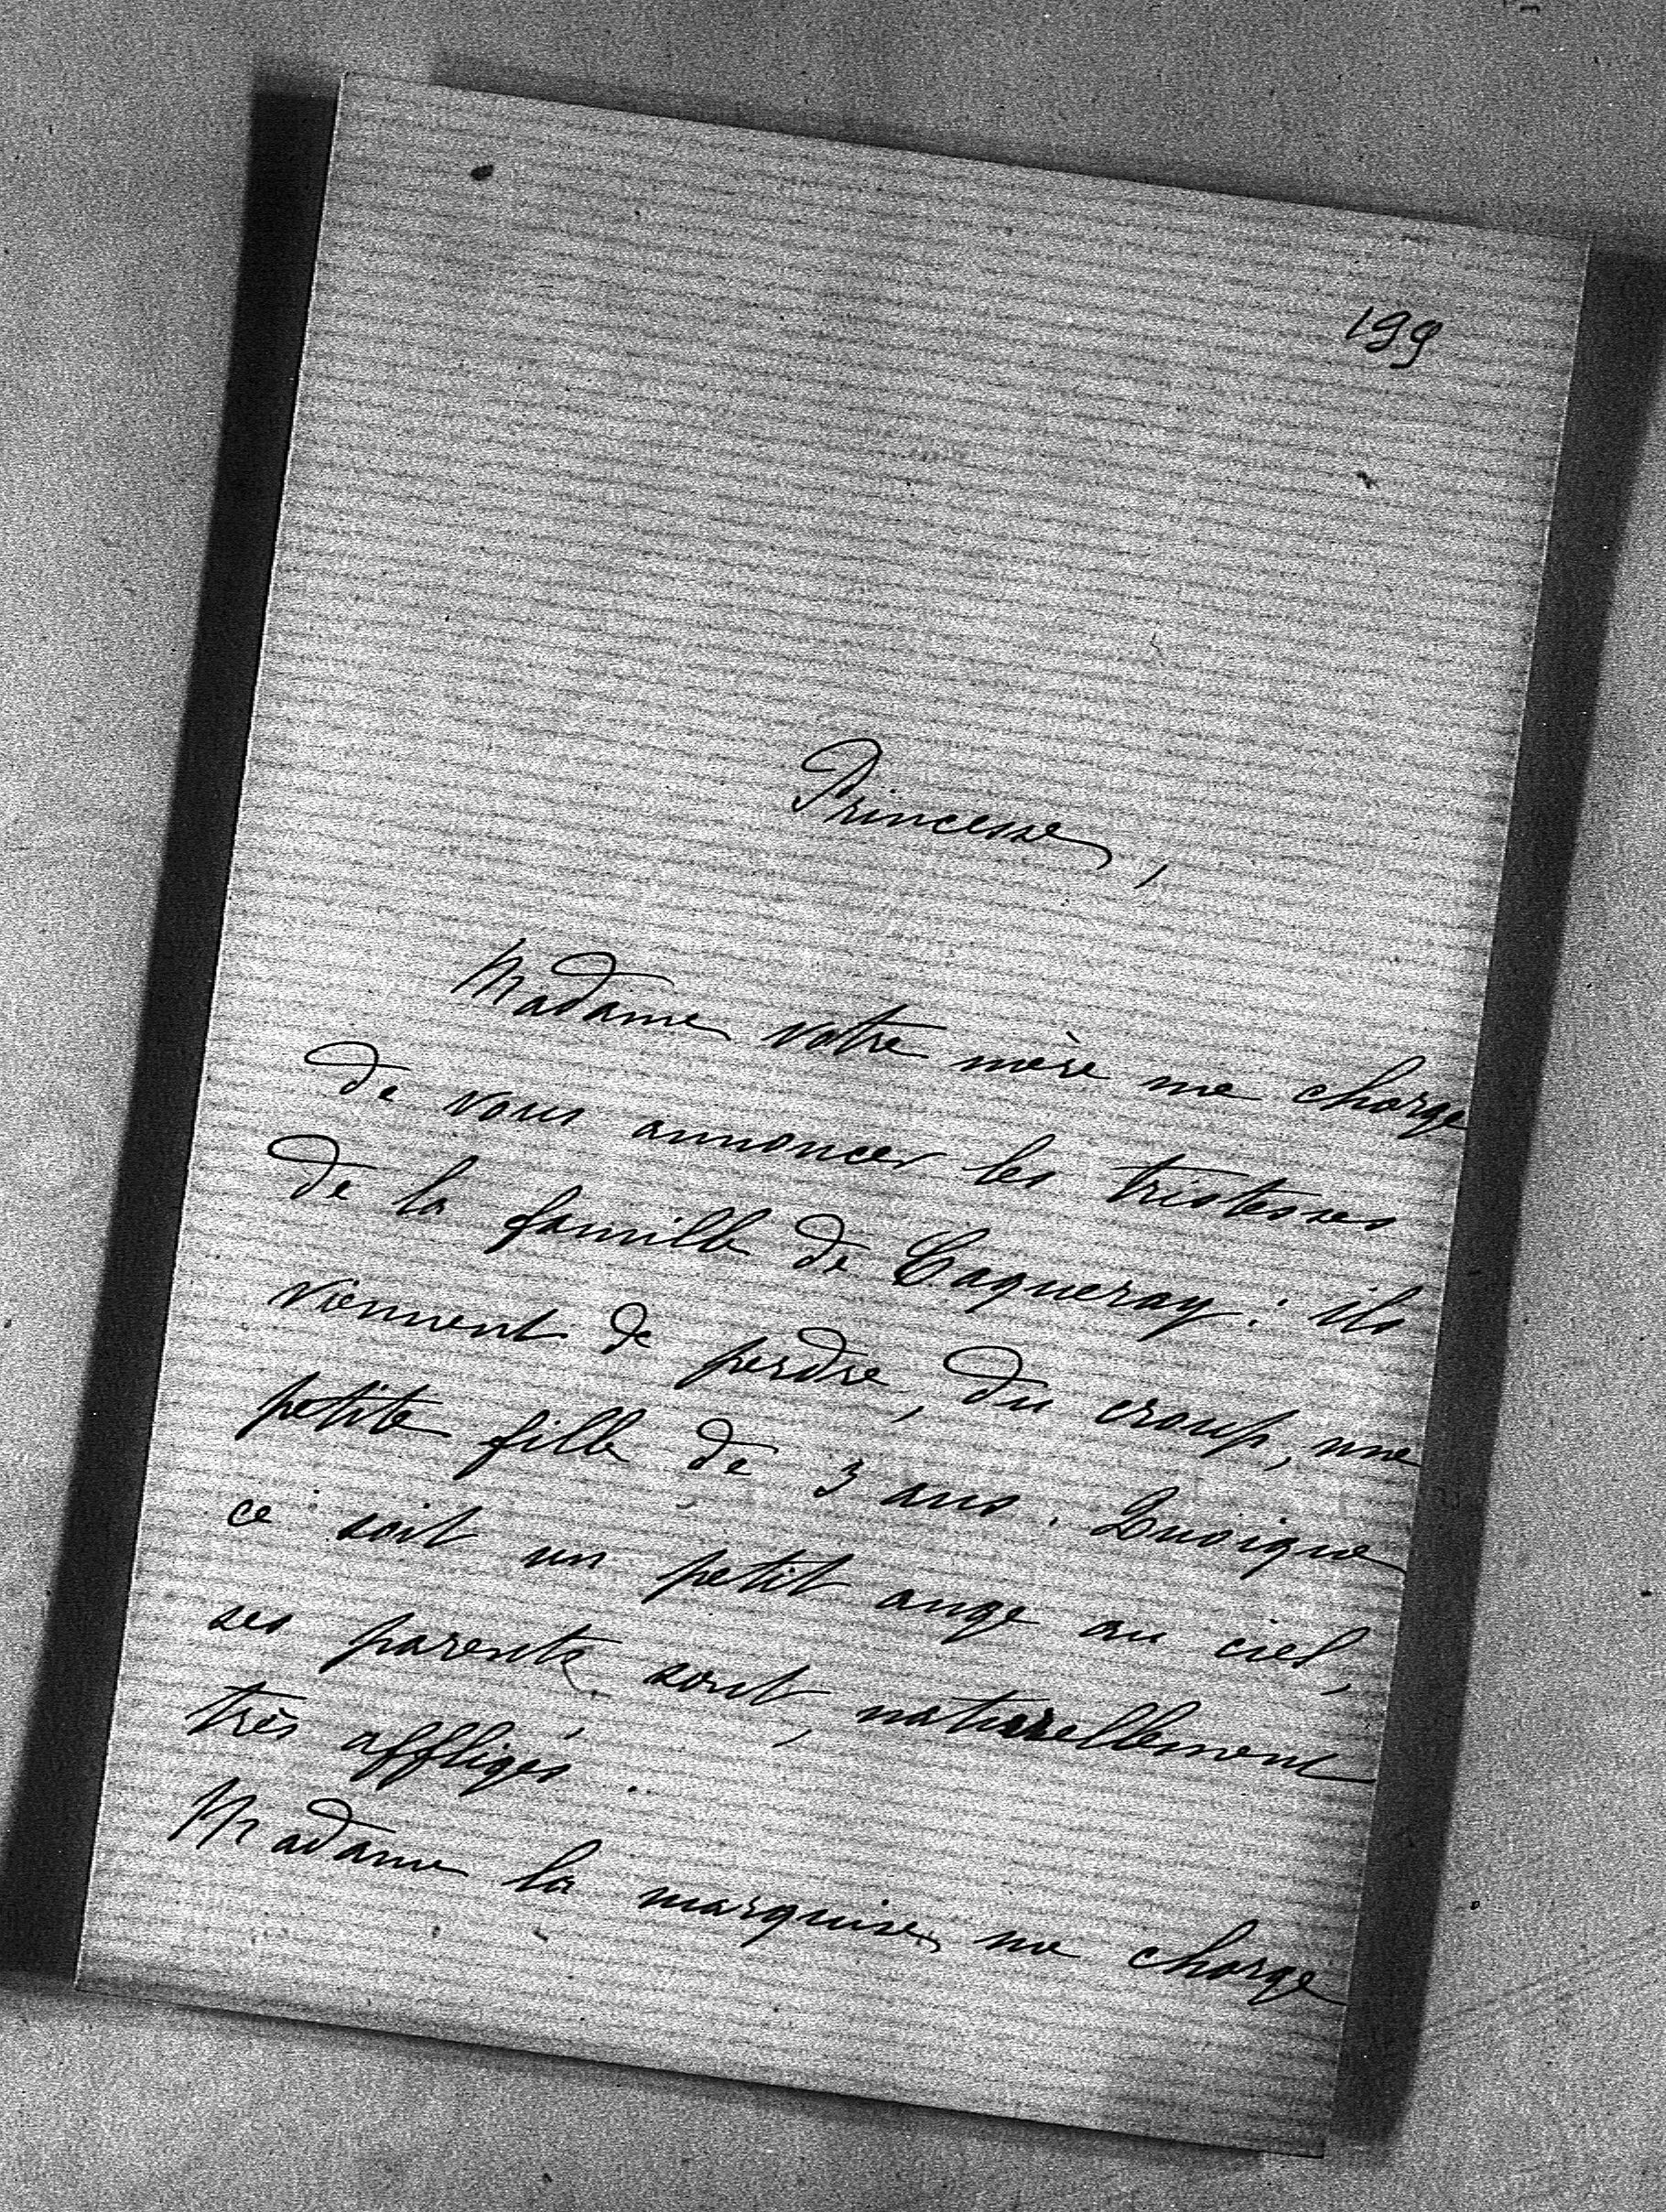 199
Princesse,
Madame votre mère me charge
de vous annoncer les tristesses
de la famille de Caqueray : ils
viennent de perdre, du croup, une
petite fille de 3 ans. Quoique
ce soit un petit ange au ciel,
ses parents sont, naturellement
très affligés.
Madame la marquise me charge